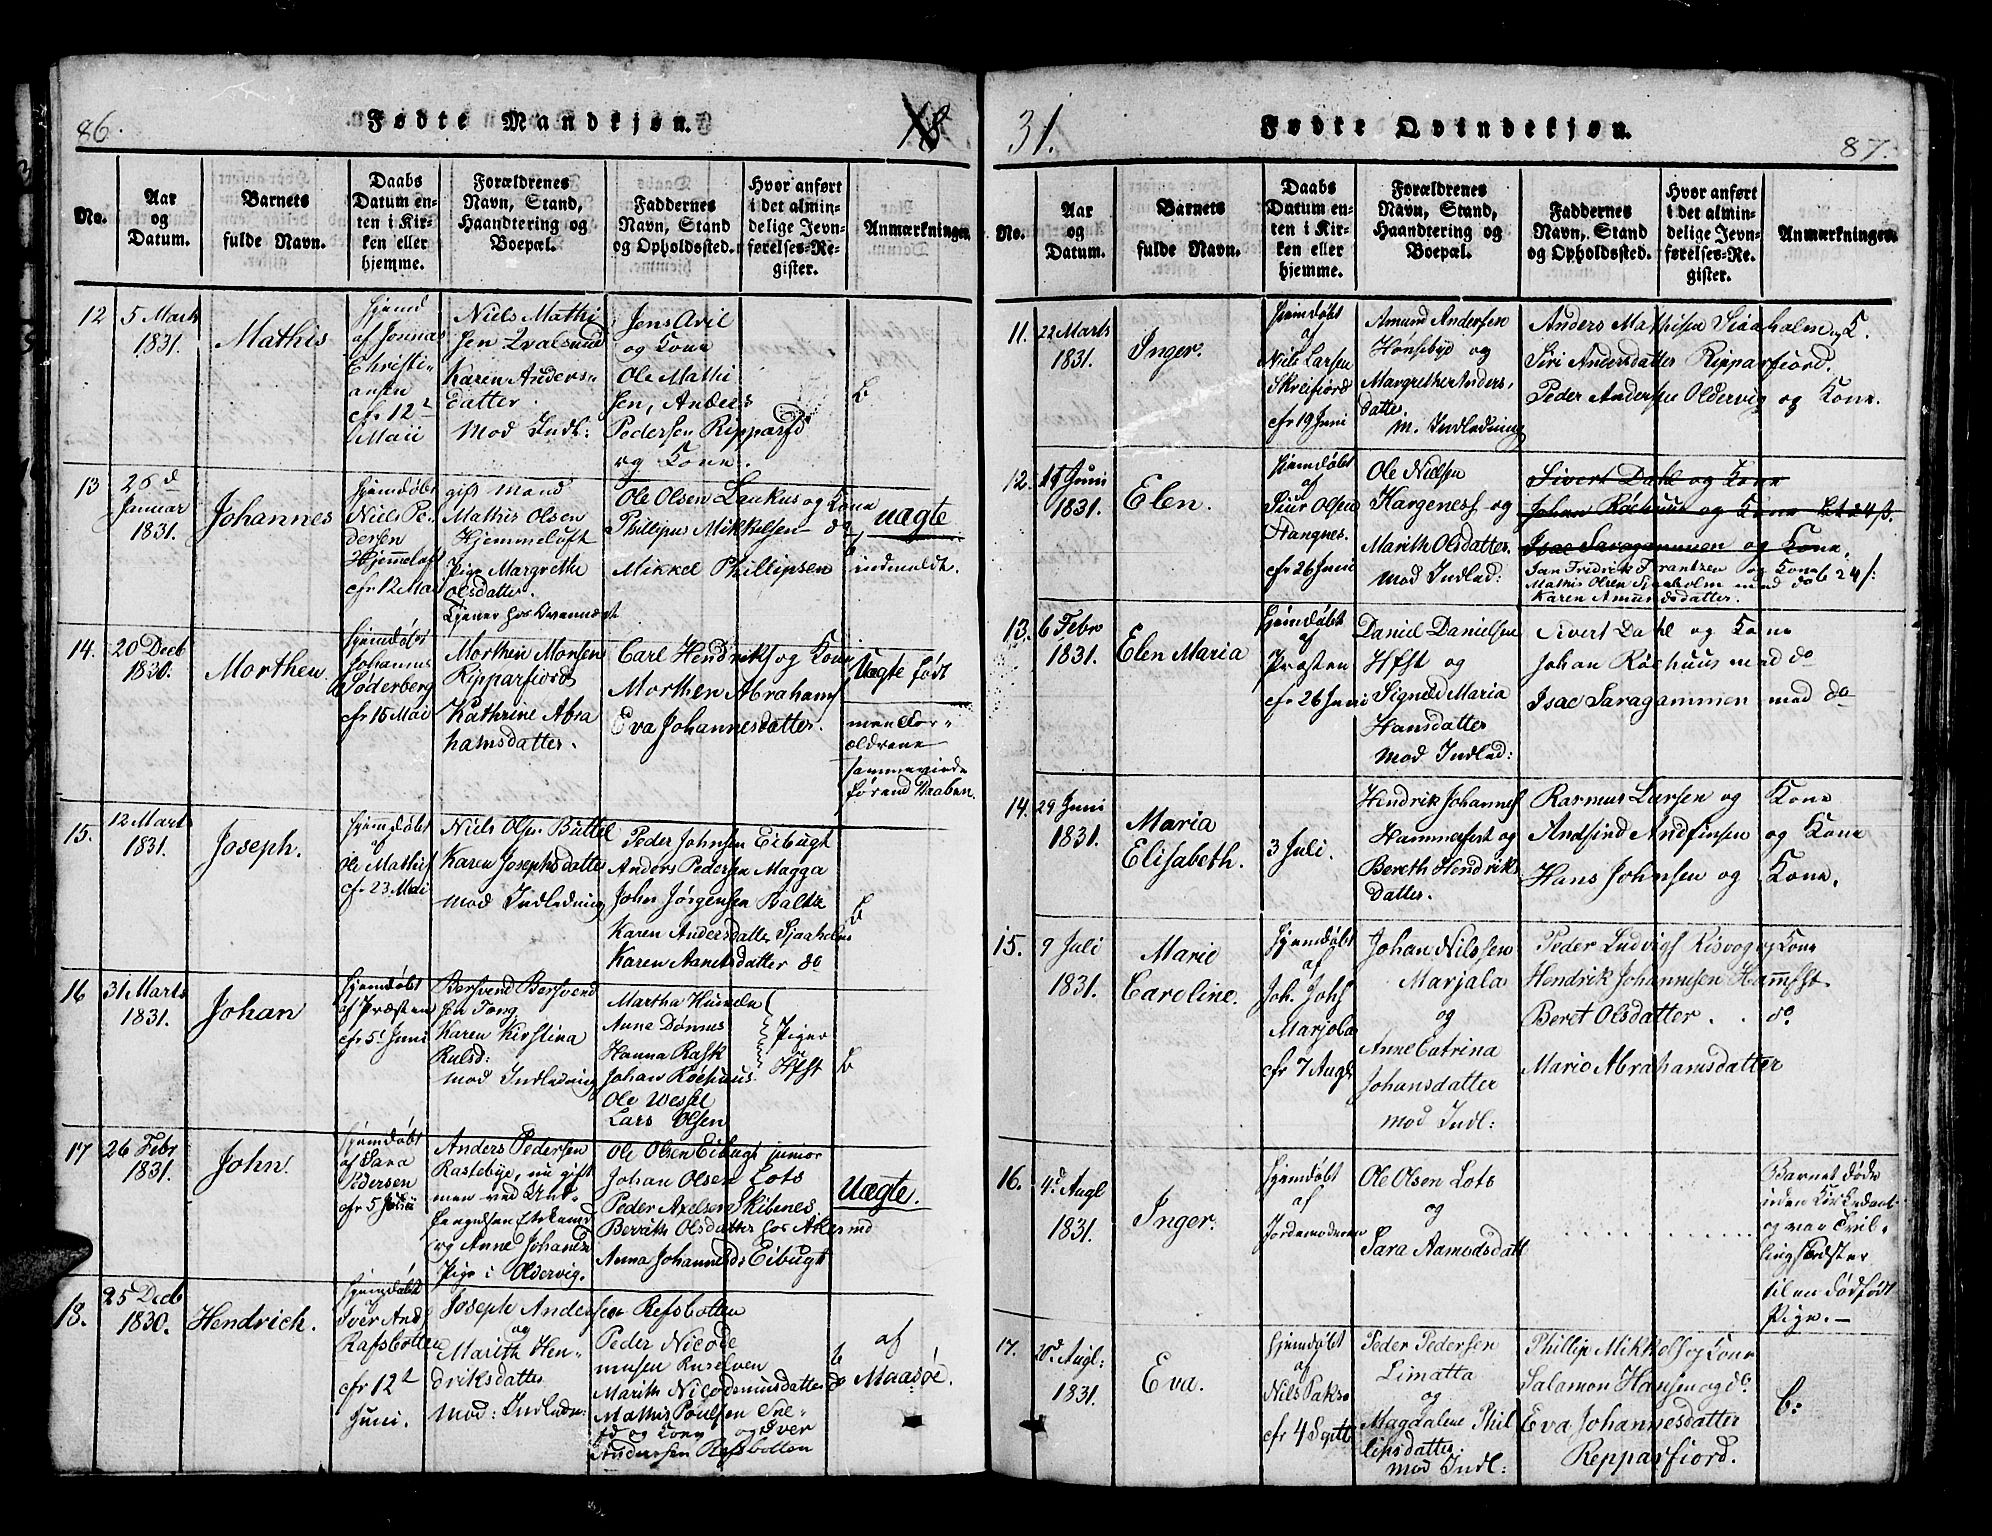 86.
Fødte Mandkjøn.
18
No.
Aar
og
Datum.
Barnets
fulde Navn.
Daabs
Datum en-
ten i Kir-
ken eller
hjemme.
Forældrenes
Navn, Stand,
Haandtering og
Boepæl.
Faddernes
Navn, Stand
og Opholdssted.
Hvor anført
i det almin-
delige Jevn-
førelses-Re-
gister.
Anmærkninger
12
5 Marts
1831.
Mathis
hjemd
af Jonnas
Christi-
ansen
cfr 12te
Maii
Niels Mathi
sen Qvalsund
Karen Anders-
datter.
Mod Indl:
Jens Aril
og Kone
Ole Mathi
sen, Anders
Pedersen Ripparfd
og Kone.
b
13
26d
Januar
1831.
Johannes
hjemdøbt
Niels Pe-
dersen
Hjemmeluft
cfr 12 Mai
gift Mand
Mathis Olsen
Hjemmeluft
Pige Margrethe
Olsdatter.
tjener hos Qvennest
Ole Olsen Leukus og Kone
Phillipus Mikkelsen do
Mikkel Phillipsen
uægte
b
indmeldt.
14.
20 Decb
1830.
Morthen
hjemdøbt
Johannes
Søderberg
cfr 15 Mai
Morthen Monsen
Ripparfjord
Kathrine Abra
hamsdatter.
Carl Hendriks og Kone
Morthen Abrahams
Eva Johannesdatter.
Uægte født
men For-
ældrene
sammenviede
førend Daaben.
15.
12 Marts
1831.
Joseph.
hjemdøbt
af
Ole Mathis
cfr 23 Mai
Niels Olsen Buttel
Karen Josephsdatter
mod Indledning
Peder Johnsen Eibugt
Anders Pedersen Magga
John Jørgensen Baltzi
Karen Andersdatter Sjaaholm
Karen Aanetsdatter do
b
16
31 Marts
1831.
Johan
hjemdøbt
af Præsten
cfr 5t Juni
Bersvend Bersvend
sen Tong
Karen Kirstina
Rulsd:
mod Indledning
Martha Humeln
Anne Dønnes
Hanna Rask
Johan Röchuus
Ole Wessel
Lars Olsen
Piger
Hfst
b
17
26 Febr
1831.
John.
hjemdøbt
af Lara
Pedersen
cfr 5 Julii
Anders Pedersen
Rastebye, nu gift
men ved Und-
og Anne Johannes
Pige i Oldervig.
Ole Olsen Eibugt junior
Johan Olsen Lots
Peder Axelsen Skibenes
Berethe Olsdatter
Anna Johannesd Eibugt
Uægte.
18.
25 Decb
1830.
Hendrich.
hjemdøbt
af
Iver And
Rafsbotten
cfr 12te
Juni.
Joseph Andersen Refsbotten
og
Marith Hen-
driksdatter
Mod: Indledn:
Peder Nicode
musen Russelven
Marith Nicodemusdatter do
Mathis Poulsen
og Kone og Iver
Andersen Refsbotten
b
af
Maasöe.
31.
Fødte Qvindekjøn.
87.
No.
Aar
og
Datum.
Barnets
fulde Navn.
Daabs
Datum en-
ten i Kir-
ken eller
hjemme.
Forældrenes
Navn, Stand,
Haandtering og
Boepæl.
Faddernes
Navn, Stand
og Opholdssted.
Hvor anført
i det almin-
delige Jevn-
førelses-Re-
gister.
Anmærkninger.
11.
22 Marts
1831.
Inger.
hjemdøbt
af
Niels Larsen
Skreifjord
cfr 19 Juni
Amund Andersen
Hønsebyd og
Margrethe Anders,
datter.
M. Indledning
Anders Mathisen Sjaaholm og K.
Siri Andersdatter Ripparfiord.
Peder Andersen Oldervig og Kone.
12.
11 Juni
1831.
Elen.
hjemdøbt
af
Siur Olsen
Stangnes.
cfr 26 Juni
Ole Nielsen
Kargeness og
Marith Olsdatter.
mod Indled:
Sivert Dahl og Kone
Johan Röchuus og Kone
Isac Saragammen og Kone.
Jan Fredrik Frantzen og Kone
Mathis Olsen Sjaaholm med do b 24/:
Karen Amundsdatter.
13.
6 Febr
1831.
Elen Maria
hjemdøbt
af
Præsten
cfr 26 Juni
Daniel Danielsen
Hfst og
Signild Maria
Hansdatter
Mod Indled:
Sivert Dahl og Kone
Johan Röchuus med do
Isac Saragammen med do
14.
29 Juni
1831.
Maria
Elisabeth.
3 Juli.
Hendrik Johannes
Hammerfest og
Bereth Hendriks
datter.
Rasmus Larsen og Kone
Andfind Andfinsen og Kone
Hans Johnsen og Kone.
15.
9 Juli
1831.
Marie
Caroline.
hjemdøbt
af
Joh. Johs
Marjola
cfr 7 Augs
Johan Nilssen
Marjala
og
Anne Catrina
Johansdatter
mod Indl:
Peder Ludvigs Risvog og Kone
Hendrik Johannesen Hammfst.
Beret Olsdatter . . do
Marie Abrahamsdatter
16.
4d Augl
1831.
Inger.
hjemdøbt
af
Jordemoderen
Ole Olsen Lots
og
Sara Aamodsdatt
Barnet døde
uden Kirkedaab
og var Tvil-
lingsøster
til en dødfødt
Pige.—
17.
20d Augl:
1831.
Eva.
hjemdøbt
af
Nils Paks
cfr 4 Septb
Peder Pedersen
Limatta
og
Magdalene Phil
lipsdatter.
mod Indl:
Phillip Mikkels og Kone
Salamon Hansen og do
Eva Johannesdatter
Repparfjord.
b: